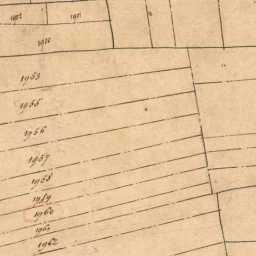 1952
1951
1950
1953
1955
1956
1957
1958
1959
1960
1961
1962